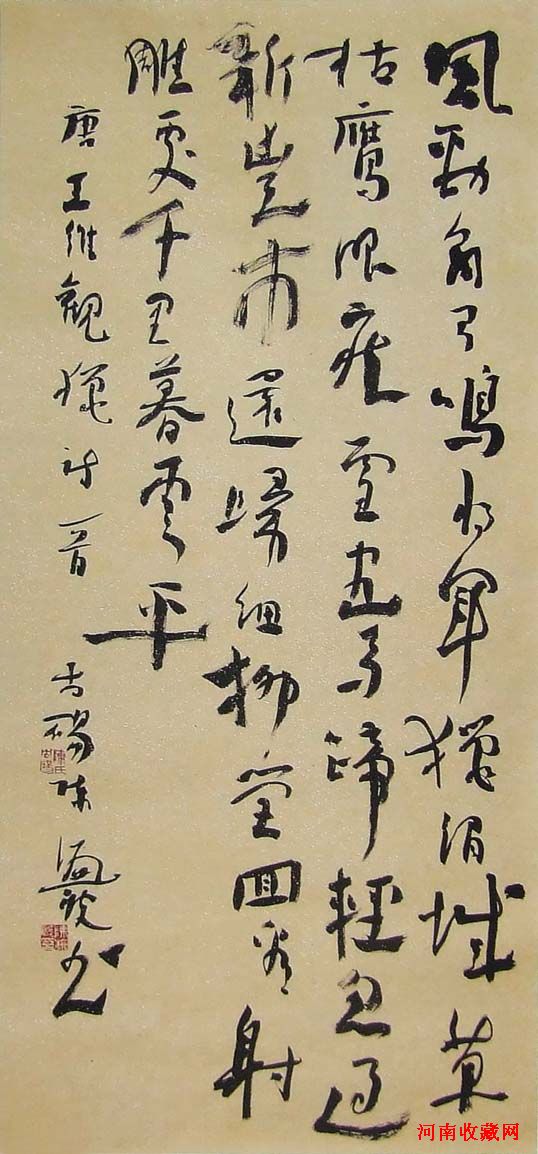 風勁角弓鳴將軍獵渭城草
枯鷹眼疾雪盡馬蹄輕忽過
新豐市還歸細柳營回看射
雕處千里暮雲平
唐王維觀獵詩一首
古碭陳
河南收藏网